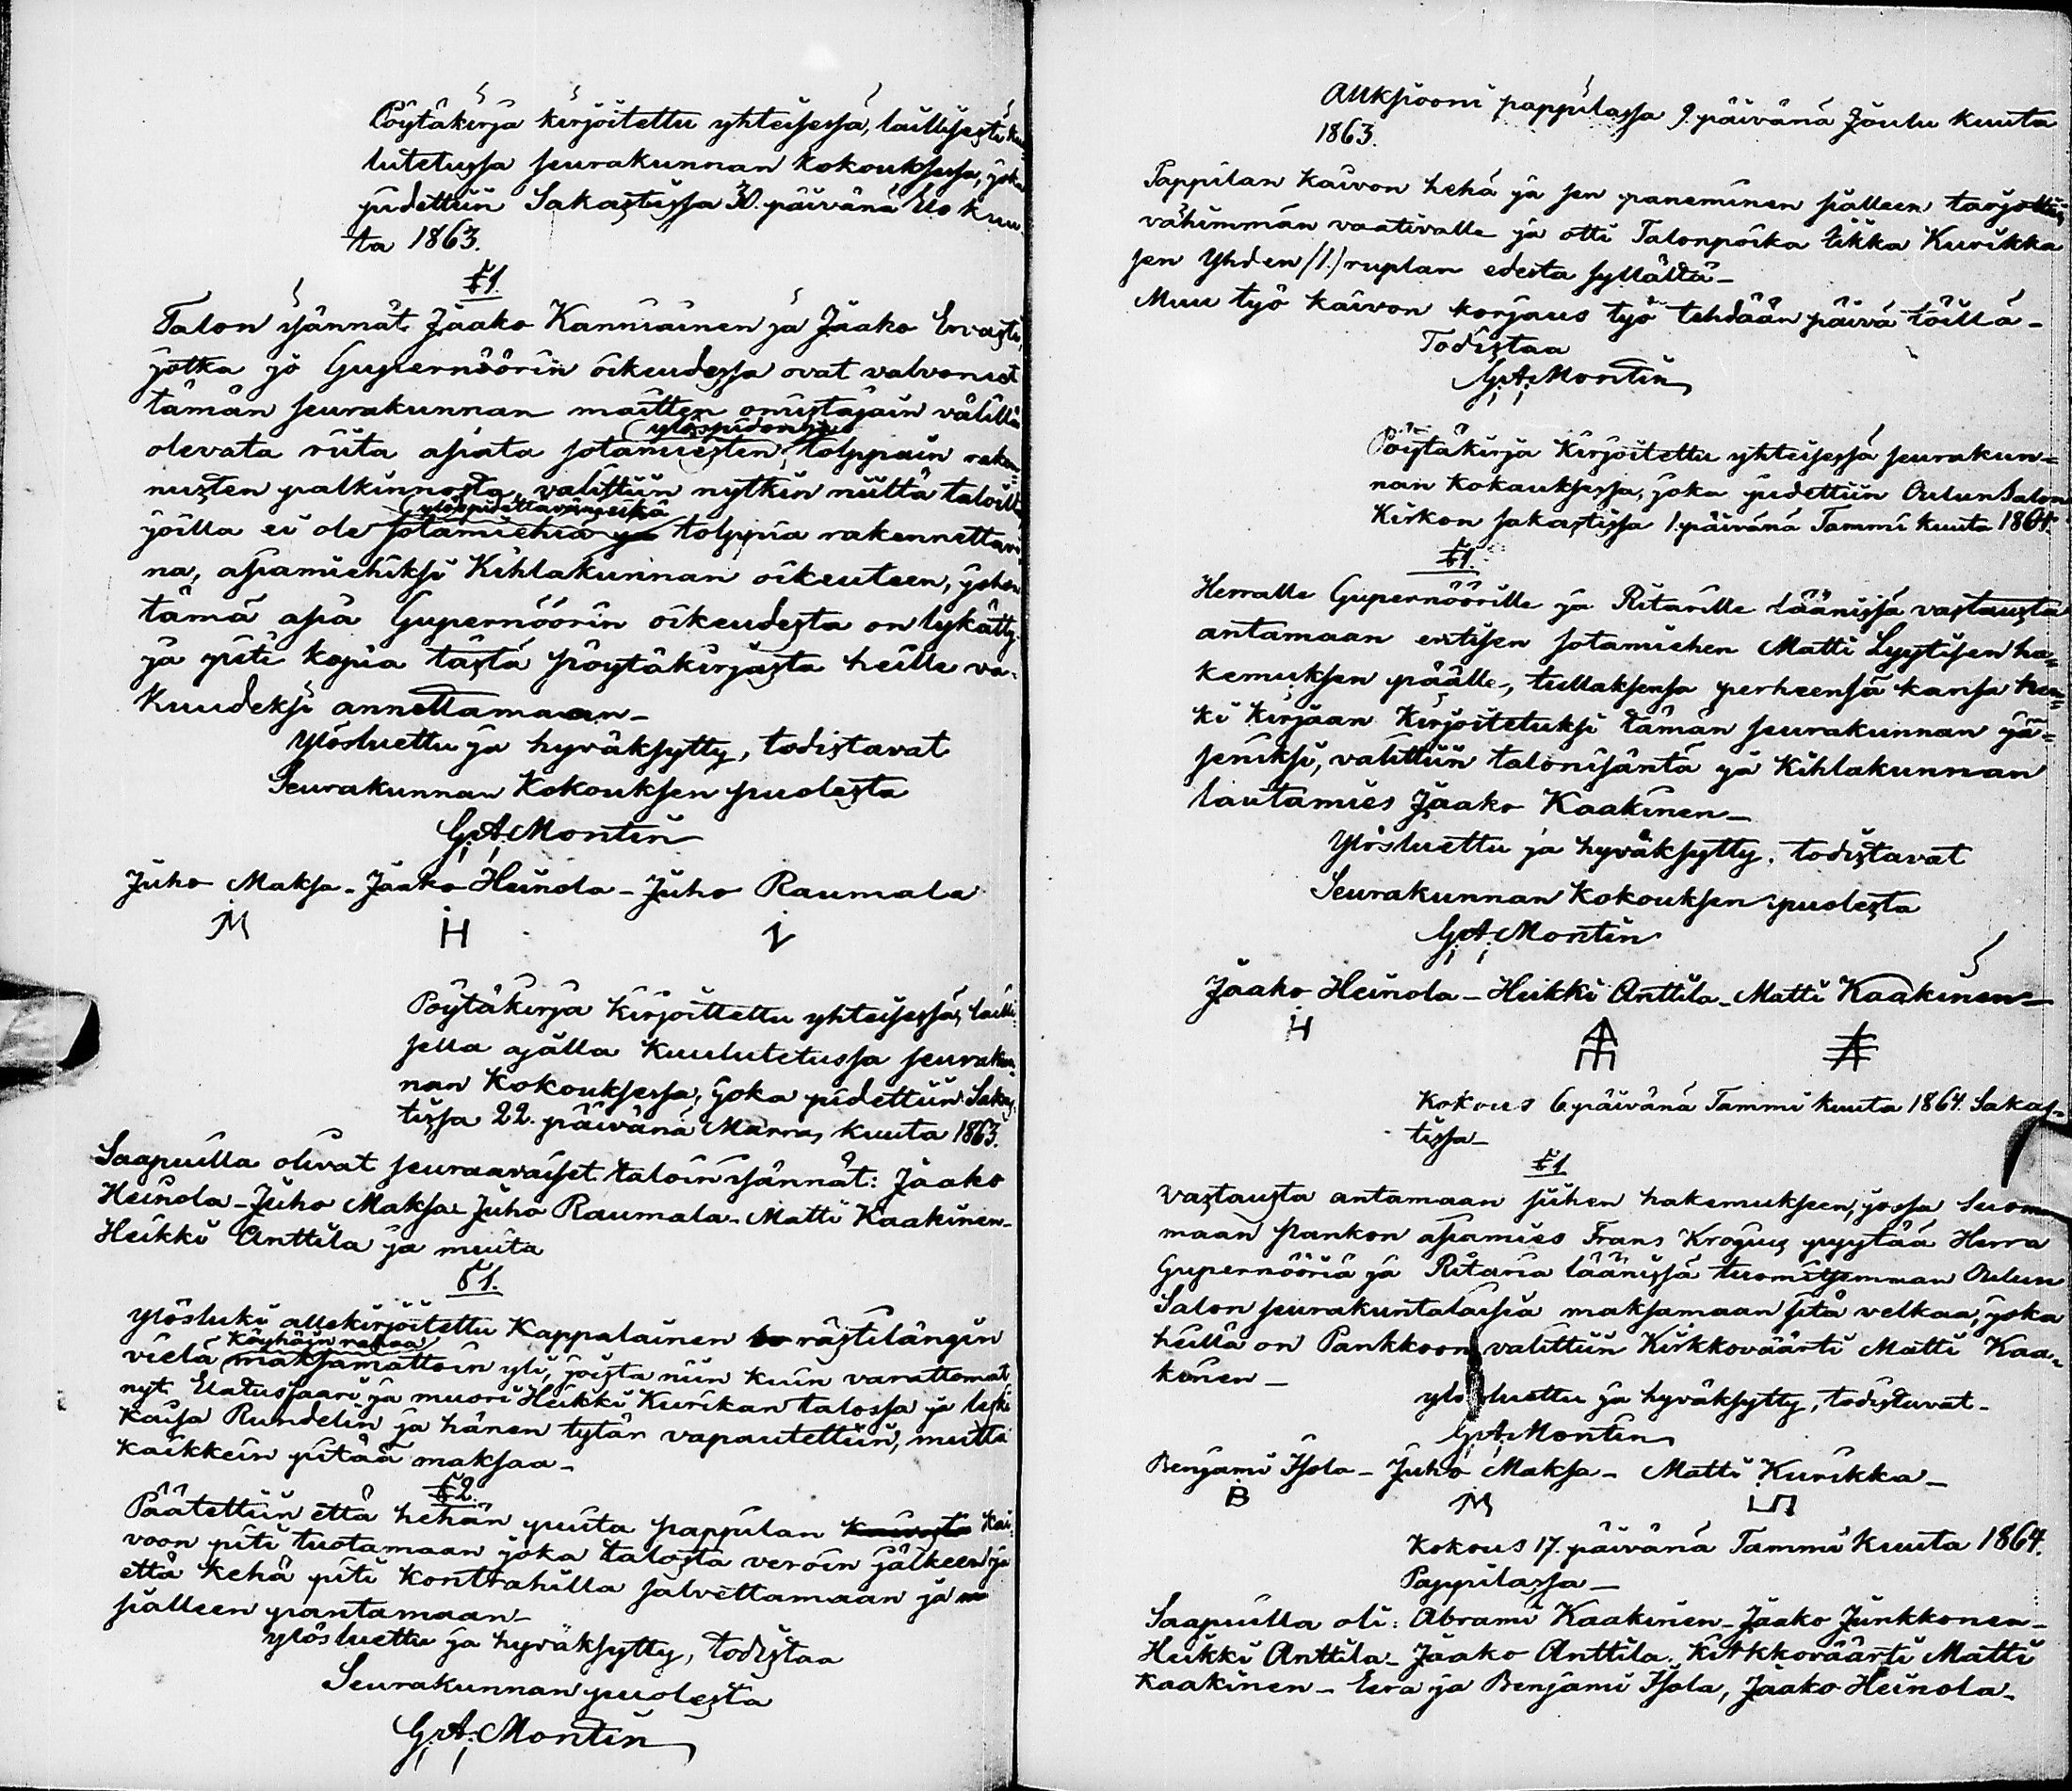 Pöytäkirja kirjoitettu yhteisessä, laillisesti kuu-
lutetussa seurakunnan kokouksessa, joka
pidettiin Sakastissa 30. päivänä Elo kuu-
ta 1863.
§1.
Talon isännät Jaako Kanniainen ja Jaako Ervasti,
jotka jo Gupernöörin oikeudessa ovat valvonet
tämän seurakunnan maitten omistajain välillä
ylöspidon ja
olevata riita asiata sotamiesten tolppain raken-
nusten palkinnosta, valittiin nytkin niiltä taloilta
ylöspidettävän eikä
joilla ei ole sotamiehiä ja tolppia rakennettavi
na, asiamiehiksi Kihlakunnan oikeuteen, johon
tämä asia Gupernöörin oikeudesta on lykätty
ja piti kopia tästä pöytäkirjasta heille va-
kuudeksi annettamaan –
Ylösluettu ja hyväksytty, todistavat
Seurakunnan Kokouksen puolesta
G. A. Montin
Juho Maksa – Jaako Heinola – Juho Raumala
M H
Pöytäkirja Kirjoittettu yhteisessä, lailli-
sella ajalla Kuulutetussa seurakun-
nan Kokouksessa, joka pidettiin Sakas-
tissa 22. päivänä Marras kuuta 1863.
Saapuilla olivat seuraavaiset taloin isännät: Jaako
Heinola – Juho Maksa – Juho Raumala – Matti Kaakinen –
Heikki Anttila ja muita
§1.
Ylösluki allekirjoitettu Kappalainen rästilängin
Köyhäin rahaa
vielä maksamattoin yli, joista niin kuin varattomat
nyt Elatussaari ja muori Heikki Kurikan talossa ja leski
Kaisa Rundelin ja hänen tytär vapautettiin, mutta
kaikkein pitää maksaa –
§2.
Päätettiin että kehän puita pappilan kaivosta kai-
voon piti tuotamaan joka talosta veroin jälkeen ja
että kehä piti kontrahilla salvettamaan ja
sialleen pantamaan –
ylösluettu ja hyväksytty, todistaa
Seurakunnan puolesta
G. A. Montin
Auksiooni pappilassa 9. päivänä Joulu kuuta
1863.
Pappilan kaivon kehä ja sen paneminen sialleen tarjottiin
vähimmän vaativalle ja otti Talonpoika Kurikka
sen Yhden /1./ ruplan edestä syllältä –
Muu työ kaivon korjaus työ tehdään päivä töillä –
Todistaa
G. A. Montin
Pöytäkirja Kirjoitettu yhteisessä seurakun-
nan Kokauksessa, joka pidettiin Oulun Salon
Kirkon sakastissa 1. päivänä Tammi kuuta 1864.
§1.
Herralle Gupernöörille ja Ritarille Läänissä vastausta
antamaan entisen sotamiehen Matti Lyytisen ha-
kemuksen päälle, tullaksensa perheensä kansa hen-
ki kirjaan Kirjoitetuksi tämän seurakunnan jä-
seniksi, valittiin talonisäntä ja Kihlakunnan
lautamies Jaako Kaakinen –
Ylösluettu ja hyväksytty, todistavat
Seurakunnan Kokouksen puolesta
G. A. Montin
Jaako Heinola – Heikki Anttila – Matti Kaakinen –
H
Kokous 6. päivänä Tammi kuuta 1864. Sakas-
tissa –
§1
Vastausta antamaan siihen hakemukseen, jossa Suom
maan Pankon asiamies Frans Krogius pyytää Herra
Gupernööriä ja Ritaria läänissä tuomitsemman Oulun
Salon seurakuntalaisia maksamaan sitä velkaa, joka
heillä on Pankkoon valittiin Kirkkoväärti Matti Kaa-
kinen –
ylösluettu ja hyväksytty, todistavat –
G. A. Montin
Benjami Isola – Juho Maksa – Matti Kurikka –
B M
Kokous 17. päivänä Tammi Kuuta 1864.
Pappilassa –
Saapuilla oli: Abrami Kaakinen – Jaako Junkkonen –
Heikki Anttila – Jaako Anttila. Kirkkoväärti Matti
Kaakinen – Eera ja Benjami Isola, Jaako Heinola –